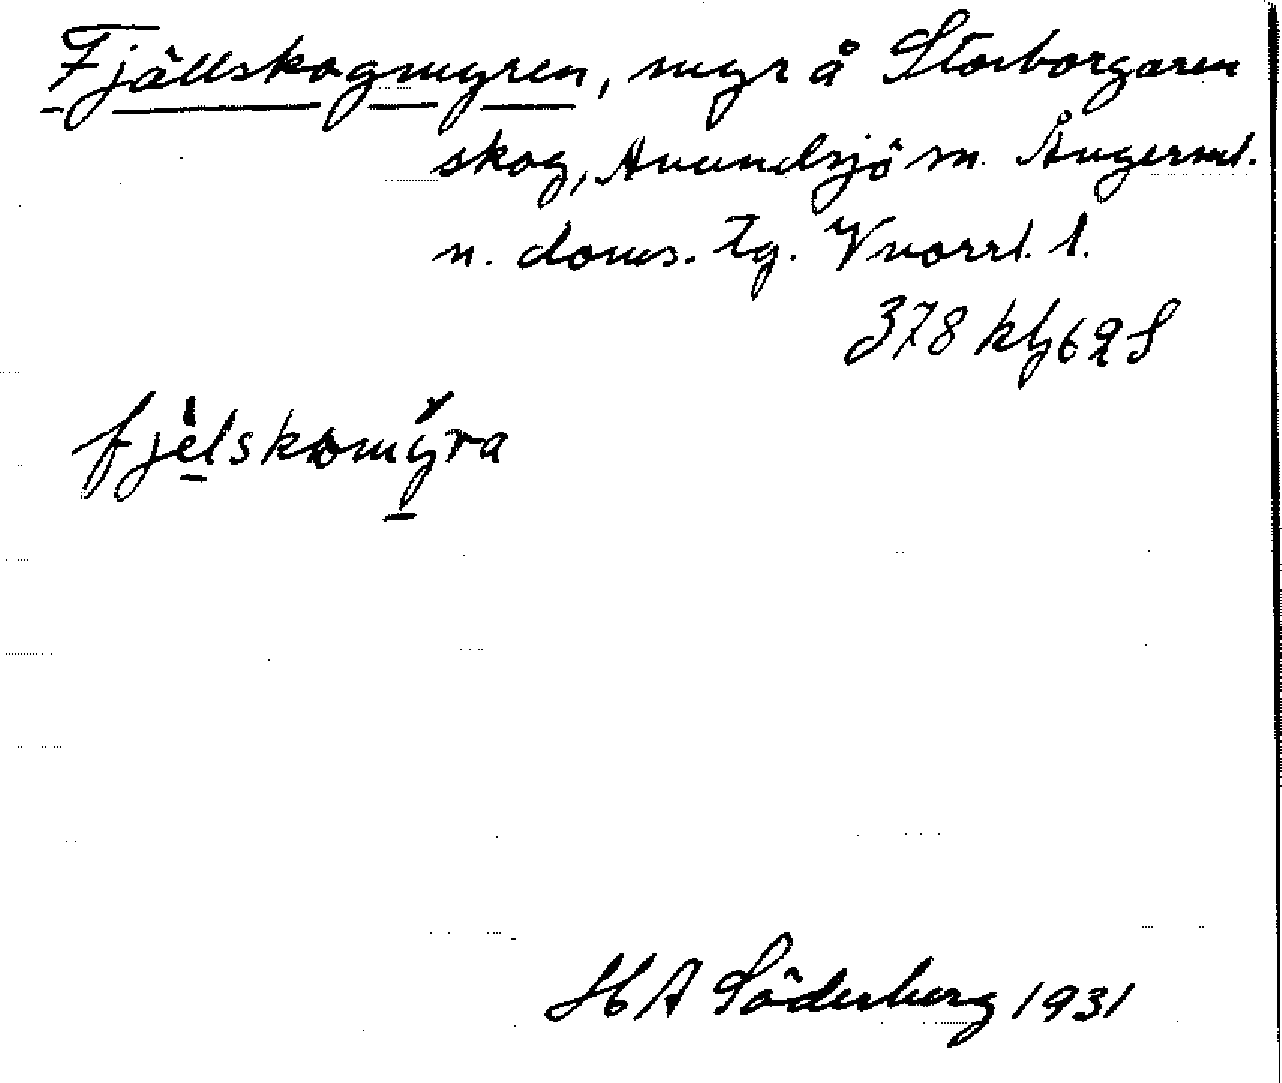 Fjällskogmyren, myr å Storborgaren
skog, Anundsjö sn. Ångerml.
n. doms. tg. Vnorrl. l.
378 kh 62 S
fjèlskomỳra
H A Söderberg 1931